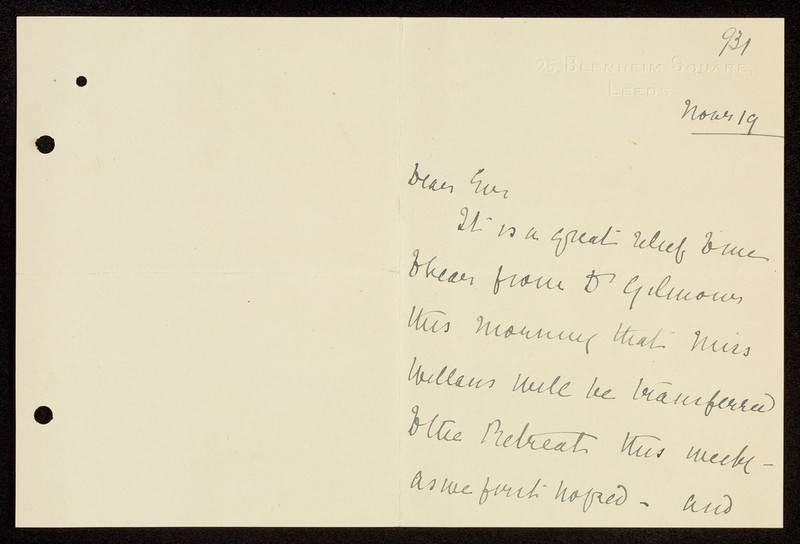 931
25, BLENHEIM SQUARE,
LEEDS.
Novr 19
Dear Sir
It is a great relief to me
to hear from Dr Gilmour
this morning that Miss
Willans will be transferred
to the Retreat this week –
as we first hoped – and